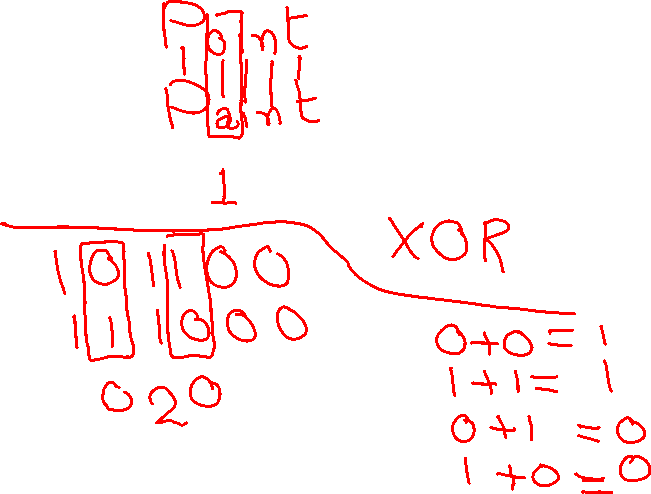 Point
Paint
1
XOR
101100
111000
020
0+0=1
1+1=1
0+1=0
1+0=0